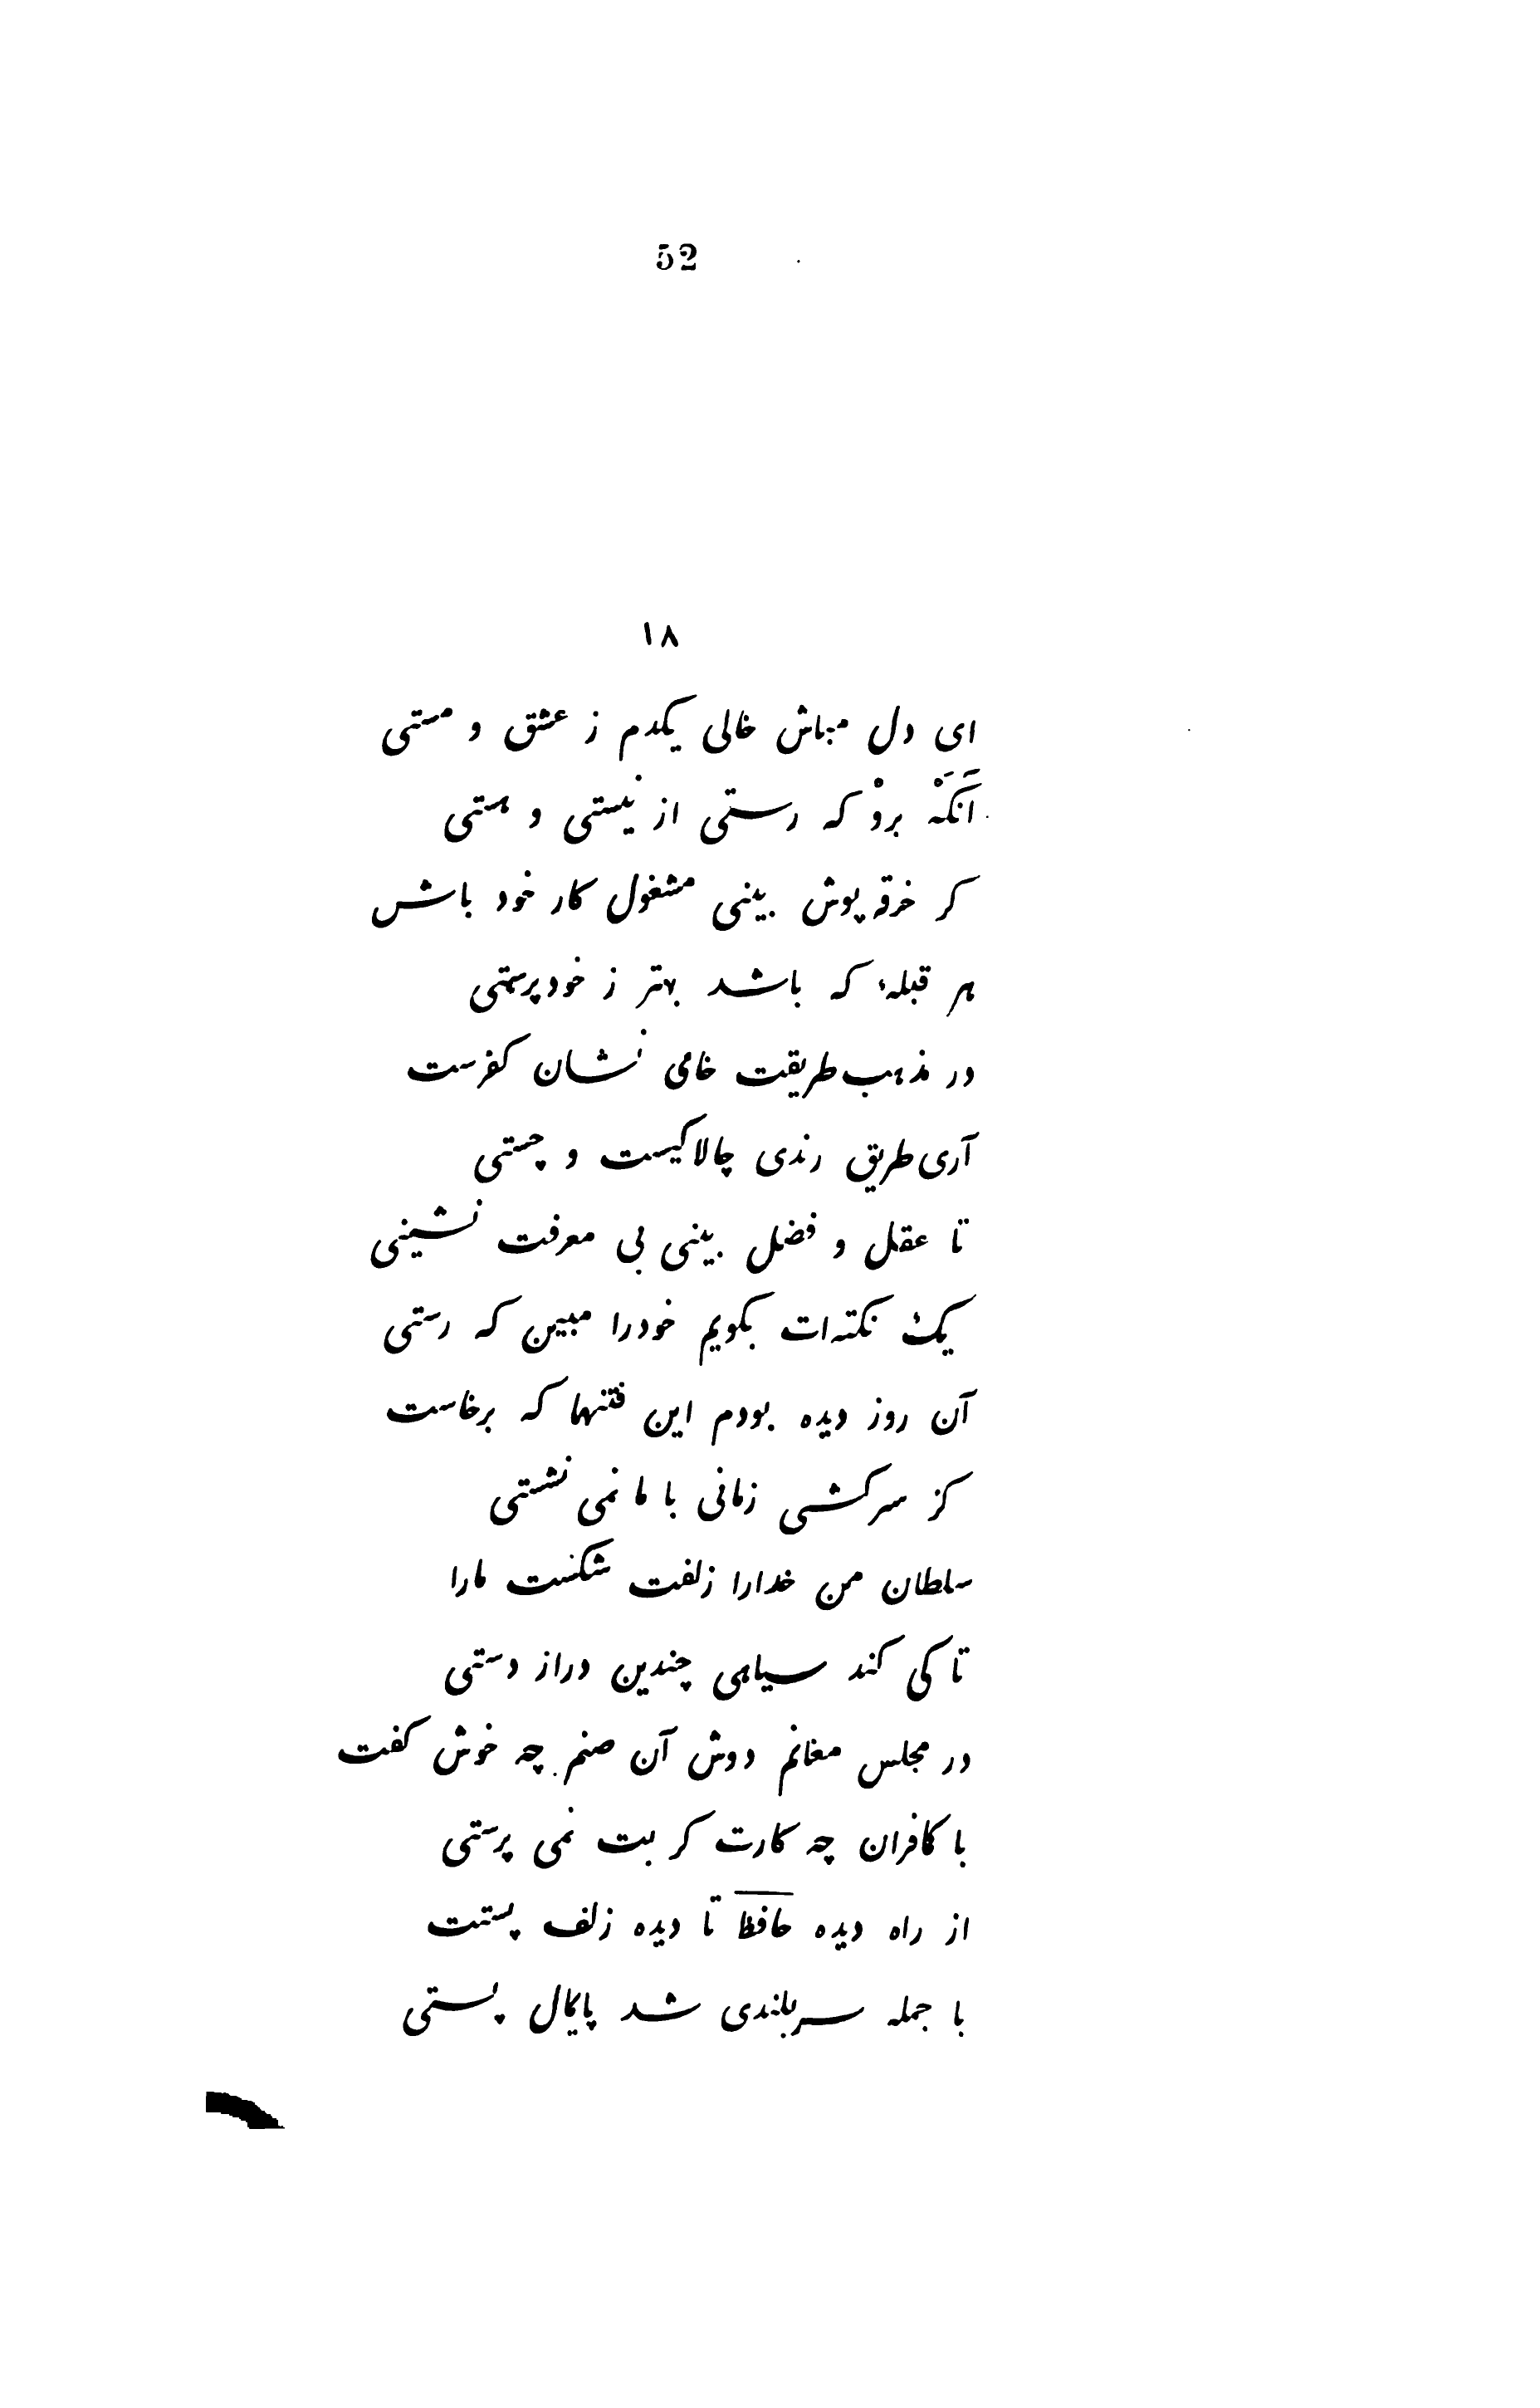 52
۱۸
ای دل مباش خالی یکدم ز عشق و مستی
اَنکَهْ بروْ که رستی از نیستی و هستی
کر خرقه پوش بینی مشغول کار خود باش
هر قبلهٔ که باشد بهتر ز خودپرستی
در مذهب طریقت خامی نشان کفرست
آری طریق رندی چالاکیست و چستی
تا عقل و فضل بینی بی معرفت نشینی
یک نکته‌ات بکویم خودرا مبین که رستی
آن روز دیده بودم این فتنها که برخاست
کز سرکشی زمانی با ما نمی نشستی
سلطان من خدارا زلفت شکست مارا
تا کی کند سیاهی چندین دراز دستی
در مجلس مغانم دوش آن صنم چه خوش کفت
با کافران چه کارت کر بت نمی پرستی
از راه دیده حافظ تا دیده زلف پستت
با جمله سربلندی شد پایمال پستی